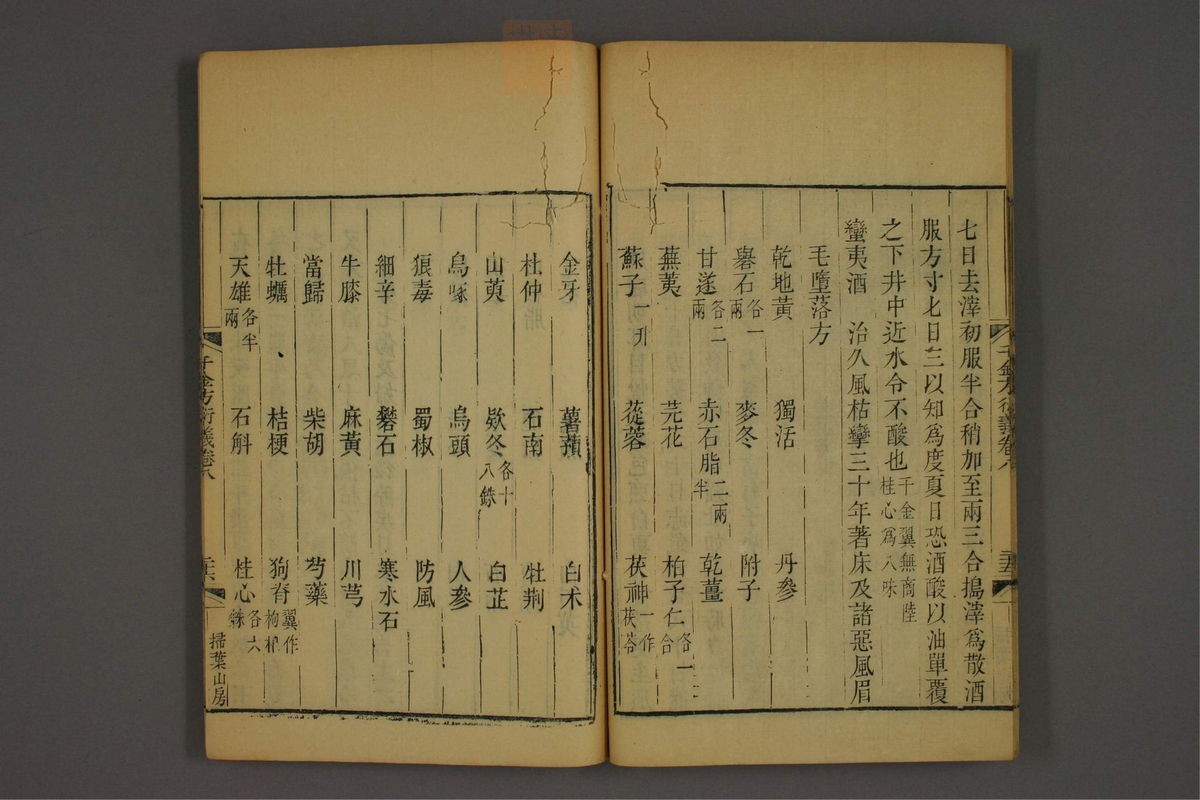 七日去滓初服半合稍加至兩三合搗滓爲散酒
服方寸匕日三以知爲度夏日恐酒酸以油單覆
之下井中近水令不酸也千金翼無商陸桂心爲八味
蠻夷酒 治久風枯攣三十年著床及諸惡風眉
毛墮落方
乾地黃 獨活 丹參
礜石各一兩 麥冬 附子
甘遂各二兩 赤石脂二兩半 乾薑
蕪荑 芫花 柏子仁各一合
蘇子一升 蓯蓉 茯神一作茯苓
千金方衍義卷八
金牙 薯蕷 白术
杜仲 石南 牡荆
山萸 欵冬各十八銖 白芷
烏啄 烏頭 人參
狼毒 蜀椒 防風
細辛 礬石 寒水石
牛膝 麻黃 川芎
當歸 柴胡 芍藥
牡蠣 桔梗 狗脊翼作枸杞
天雄各半兩 石斛 桂心各六銖
千金方衍義卷八
掃葉山房